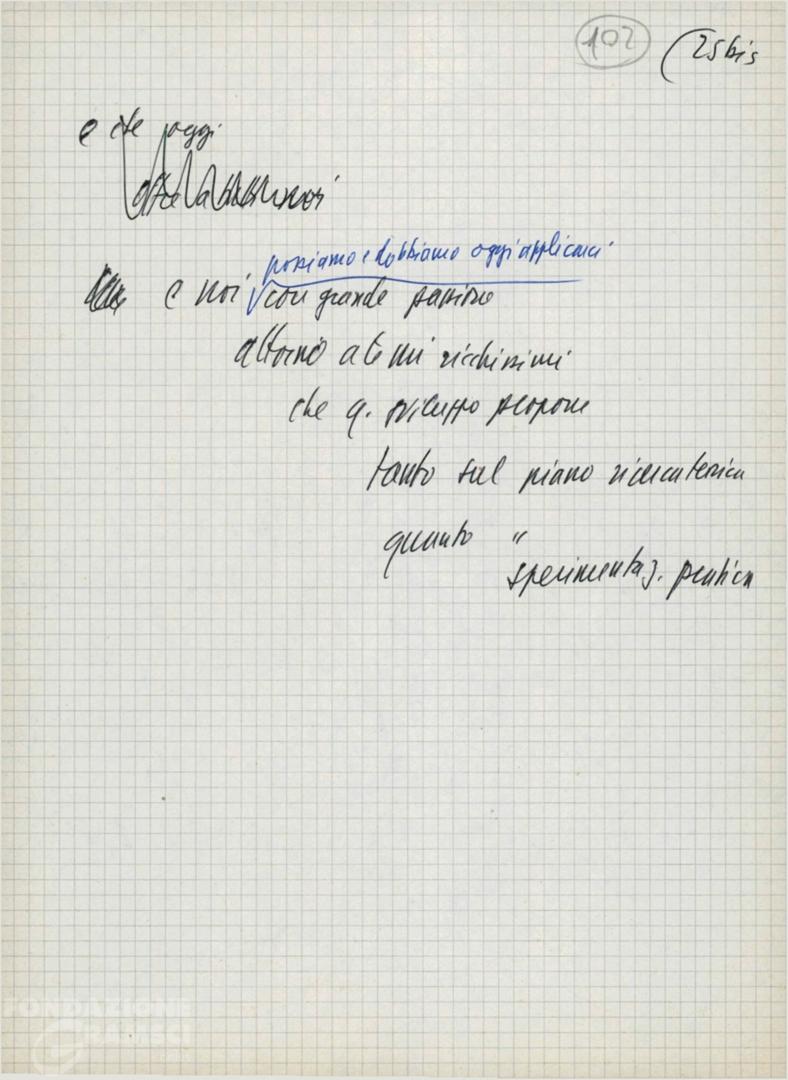 102
(25 bis
e che oggi
possiamo e dobbiamo oggi applicarci
e noi con grande passione
attorno a temi ricchissimi
che q. sviluppo propone
tanto sul piano ricerca teorica
quanto "
sperimentaz. pratica
FONDAZIONE
GRAMSCI